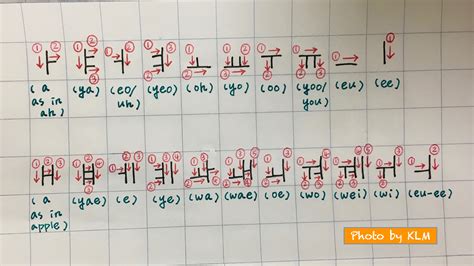 ㅏ ㅑ ㅓ ㅕ ㅗ ㅛ ㅜ ㅠ ㅡ ㅣ
(a (ya) (eo/ (yeo) (oh) (yo) (oo) (yoo/ (eu) (ee)
as in uh) you)
ah)
ㅐ ㅒ ㅔ ㅖ ㅘ ㅙ ㅚ ㅝ ㅞ ㅟ ㅢ
(a (yae) (e) (ye) (wa) (wae) (oe) (wo) (wei) (wi) (eu-ee)
as in
apple)
Photo by KLM